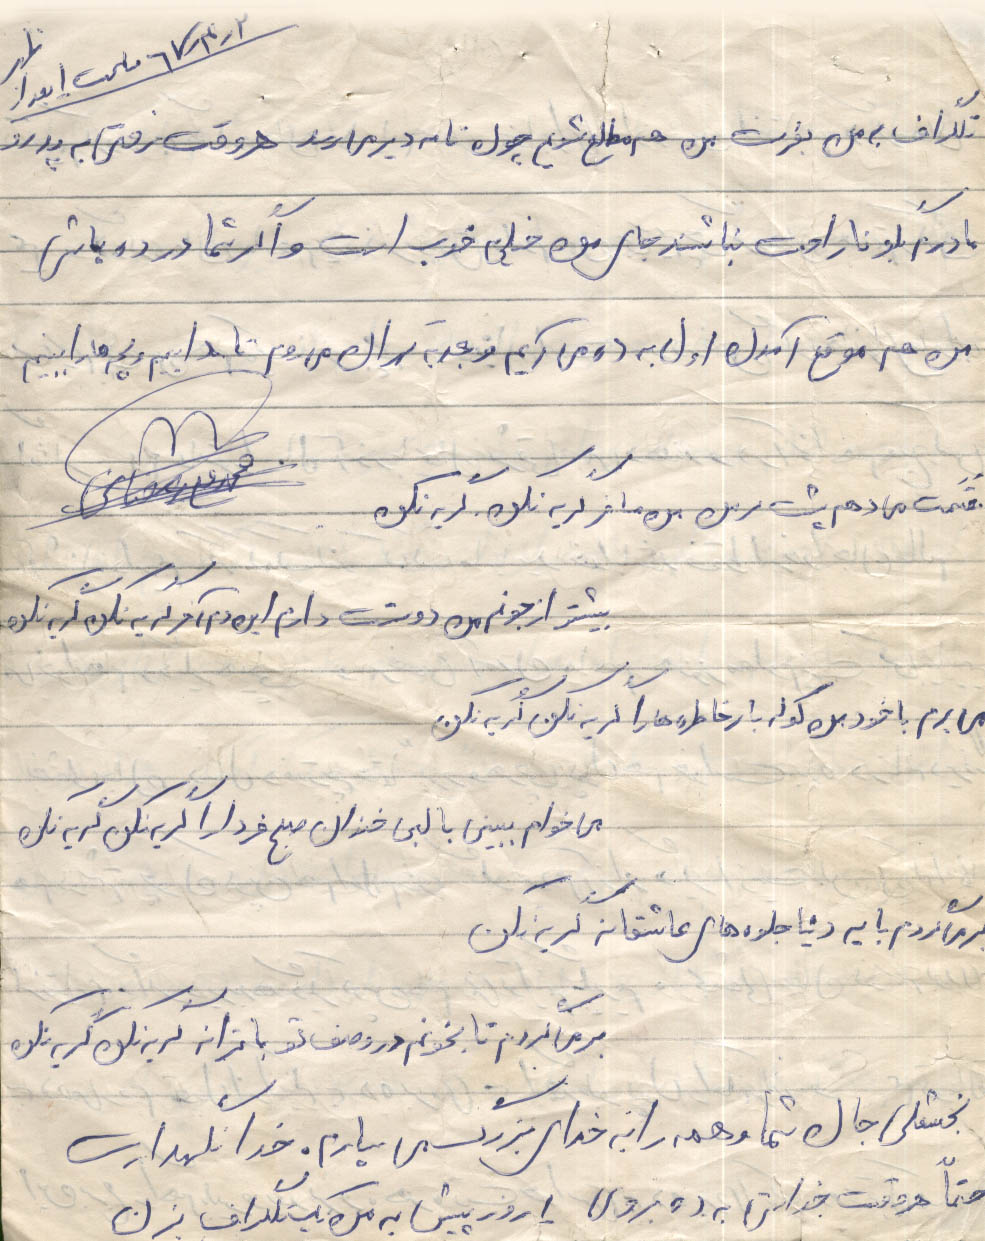 ۲ ر ۴ ر ۶۷ ساعت ۱ بعد از
ظهر
تلگراف به من بفرست من هم مطلع شوم چون نامه دیر می رسد هر وقت رفتی به پدر و
مادرم بگو ناراحت نباشند جای من خیلی خوب است و اگر شما در ده باشی
من هم موقع آمدن اول به ده می آیم و بعد به می روم تا بدانیم و بچه ها را ببینیم
قسمت می دهم پشت سر من من مسافر گریه نکن گریه نکن
بیشتر از جونم من دوست دارم این دم آخر گریه نکن گریه نکن
می برم با خود من کوله بار خاطره ها را گریه نکن گریه نکن
می خوام ببینی با لبی خندان صبح فردا را گریه نکن گریه نکن
برمی گردم با یه دنیا جلوه های عاشقانه گریه نکن
برمی گردم تا بخونم در وصف تو با ترانه گریه نکن گریه نکن
جان شما و همه را به خدای بزرگ می سپارم. خدا نگهدارت
حتماً هر وقت خواستی به ده بروی ۱ روز پیش به من یک تلگراف بزن